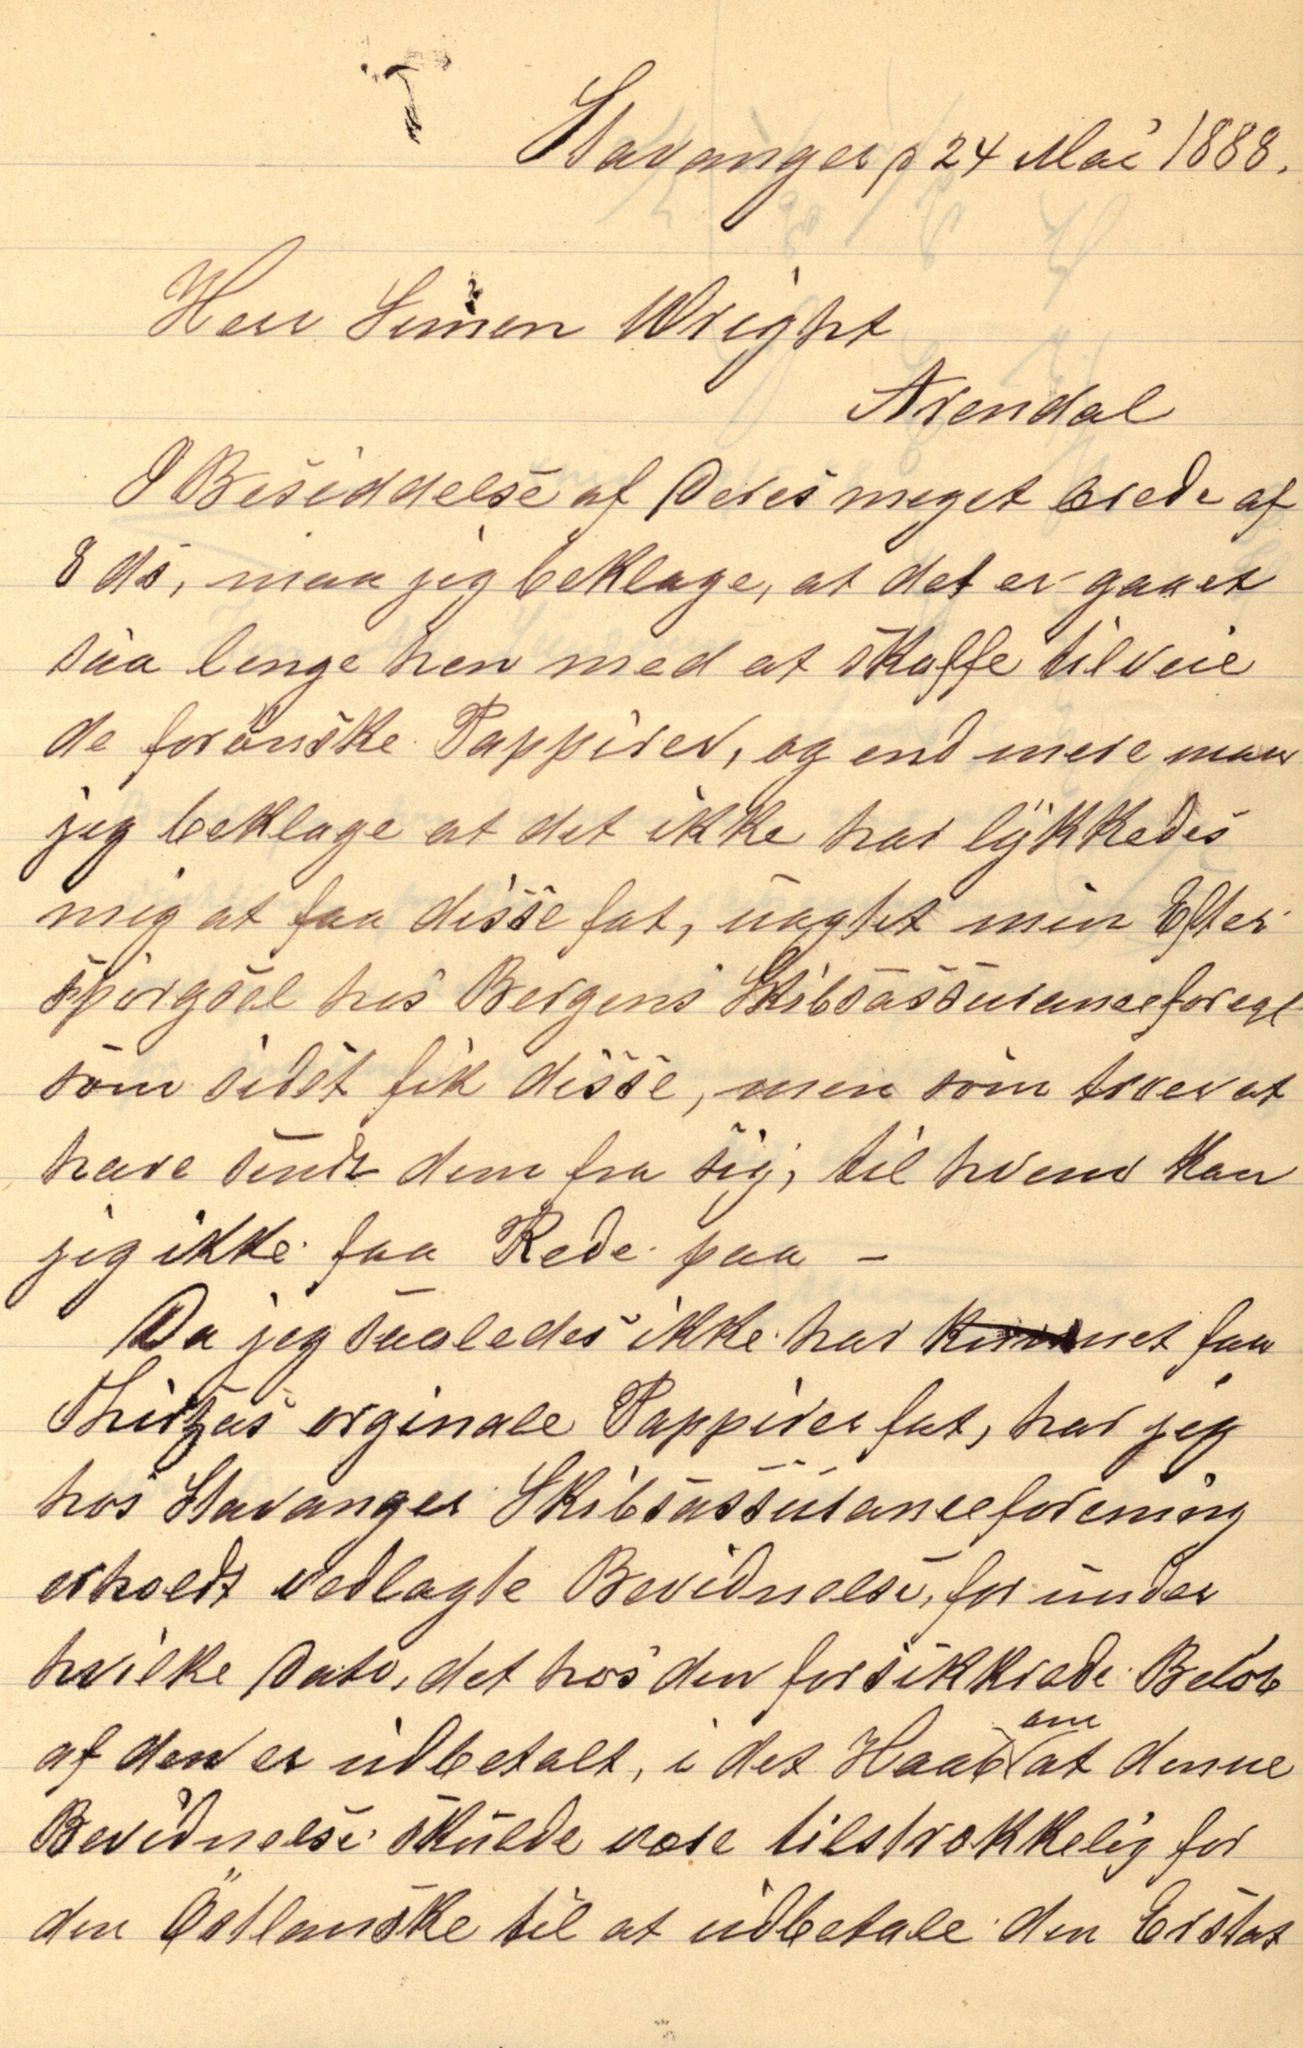 Stavanger p 24 Mai 1888.
Herr Simon Wright
Arendal
I Besiddelse af Deres meget ærede af
8 ds, maa jeg beklage, at det er gaaet
saa lenge hen med at skaffe tilveie
de forönske Pappirer, og end mere maa
jeg beklage at det ikke har lykkedes
mig at faa disse fat, uagtet min Efter
spörgsel hos Bergens Skibsassuranceforegl
som sidst fik disse, men som troer at
have sendt dem fra sig, til hvem kan
jeg ikke faa Rede paa –
Da jeg saaledes ikke har kunnet faa
Thirzas orginale Pappirer fat, har jeg
hos Stavanger Skibsassuranceforening
erholdt vedlagte Bevidnelse, for under
hvilke Dato, det hos den forsikkrede Belöb
af den er udbetalt, i det Haab om at denne
Bevidnelse skulde være tilstrækkelig for
den Östlanske til at udbetale den Erstat